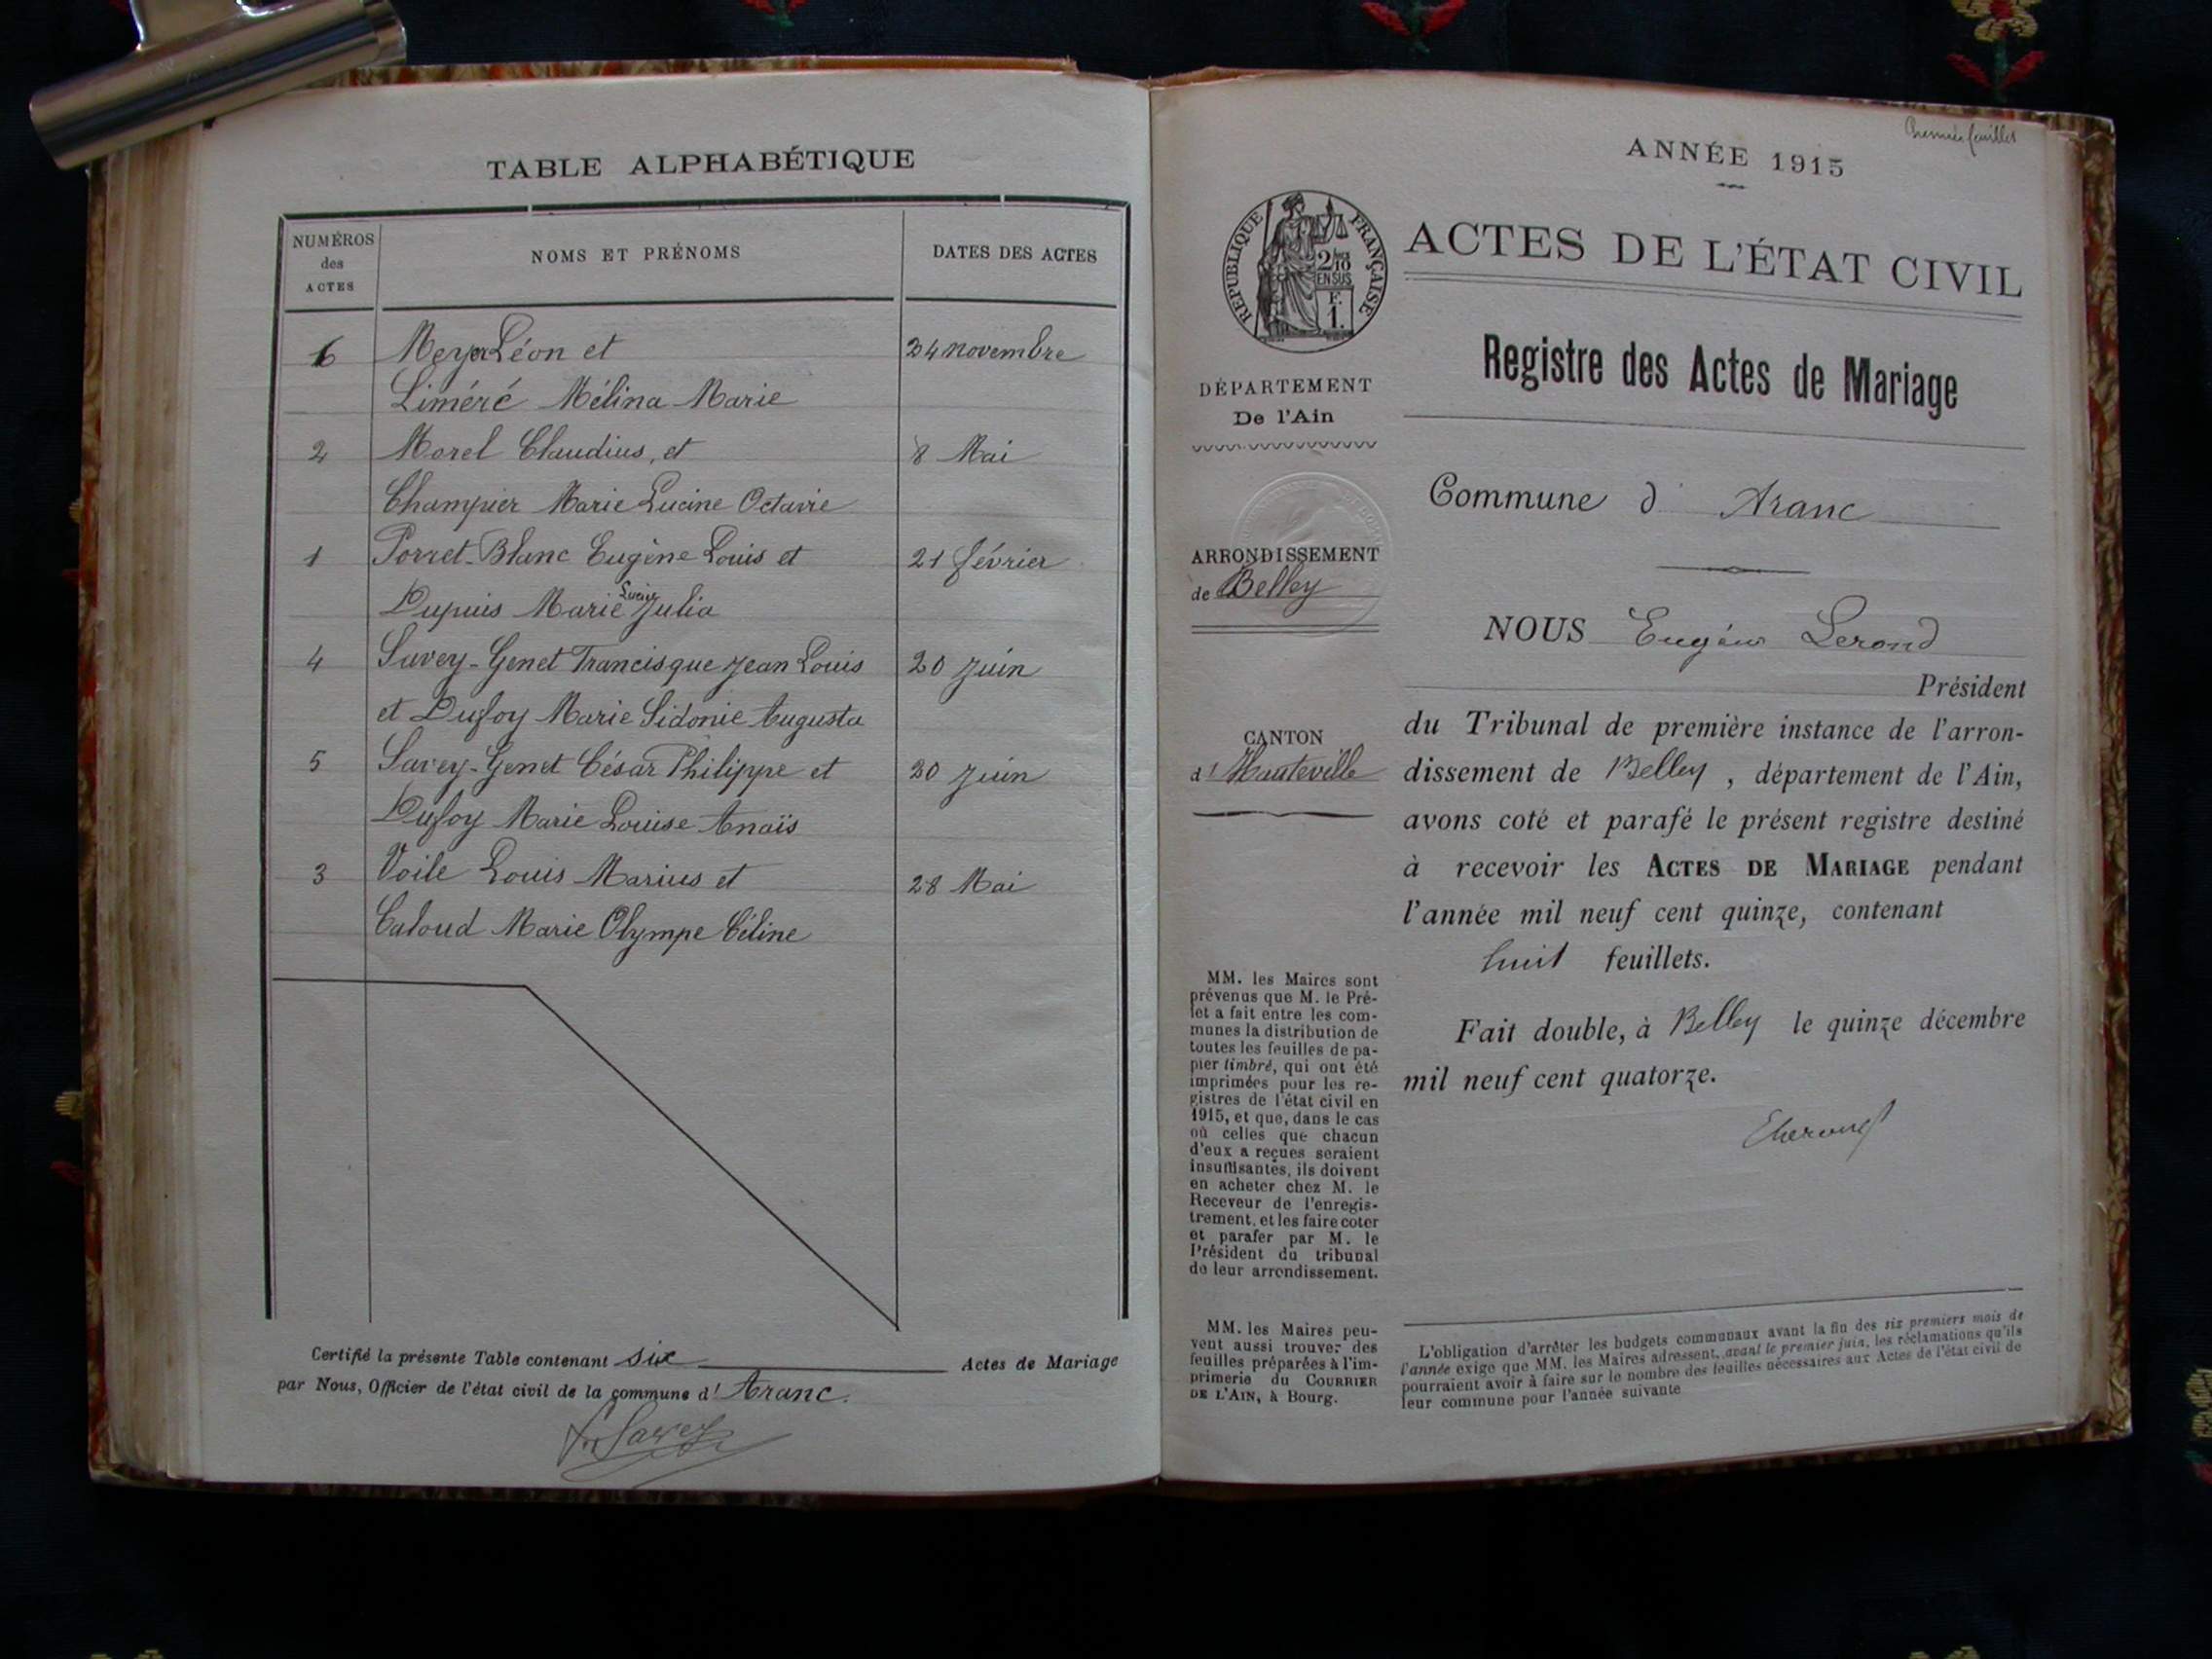 TABLE ALPHABÉTIQUE
NUMÉROS des ACTES
NOMS ET PRÉNOMS
DATES DES ACTES
6 Meyer Léon et 24 novembre
Liméré Mélina Marie
2 Morel Claudius, et 8 Mai
Champier Marie Lucine Octavie
1 Porret-Blanc Eugène Louis et 21 février
Dupuis Marie Julia
4 Savey-Genet Francisque Jean Louis 20 juin
et Dufoy Marie Sidonie Augusta
5 Savey-Genet César Philippe et 20 juin
Dufoy Marie Louise Anaïs
3 Voile Louis Marius et 28 Mai
Caloud Marie Olympe Céline
Certifié la présente Table contenant six Actes de Mariage
par Nous, Officier de l'état civil de la commune d'Aranc.
Savey
Premier feuillet
ANNÉE 1915
RÉPUBLIQUE FRANÇAISE
2/10
EN SUS
F.
1.
ACTES DE L'ÉTAT CIVIL
Registre des Actes de Mariage
DÉPARTEMENT
De l'Ain
ARRONDISSEMENT
de Belley
CANTON
d'Hauteville
MM. les Maires sont
prévenus que M. le Pré-
fet a fait entre les com-
munes la distribution de
toutes les feuilles de pa-
pier timbré, qui ont été
imprimées pour les re-
gistres de l'état civil en
1915, et que, dans le cas
où celles que chacun
d'eux a reçues seraient
insuffisantes, ils doivent
en acheter chez M. le
Receveur de l'enregis-
trement, et les faire coter
et parafer par M. le
Président du tribunal
de leur arrondissement.
MM. les Maires peu-
vent aussi trouver des
feuilles préparées à l'im-
primerie du COURRIER
DE L'AIN, à Bourg.
Commune d' Aranc
NOUS Eugène Lerond
Président
du Tribunal de première instance de l'arron-
dissement de Belley, département de l'Ain,
avons coté et parafé le présent registre destiné
à recevoir les ACTES DE MARIAGE pendant
l'année mil neuf cent quinze, contenant
huit feuillets.
Fait double, à Belley le quinze décembre
mil neuf cent quatorze.
L'obligation d'arrêter les budgets communaux avant la fin des six premiers mois de
l'année exige que MM. les Maires adressent, avant le premier juin, les réclamations qu'ils
pourraient avoir à faire sur le nombre des feuilles nécessaires aux Actes de l'état civil de
leur commune pour l'année suivante